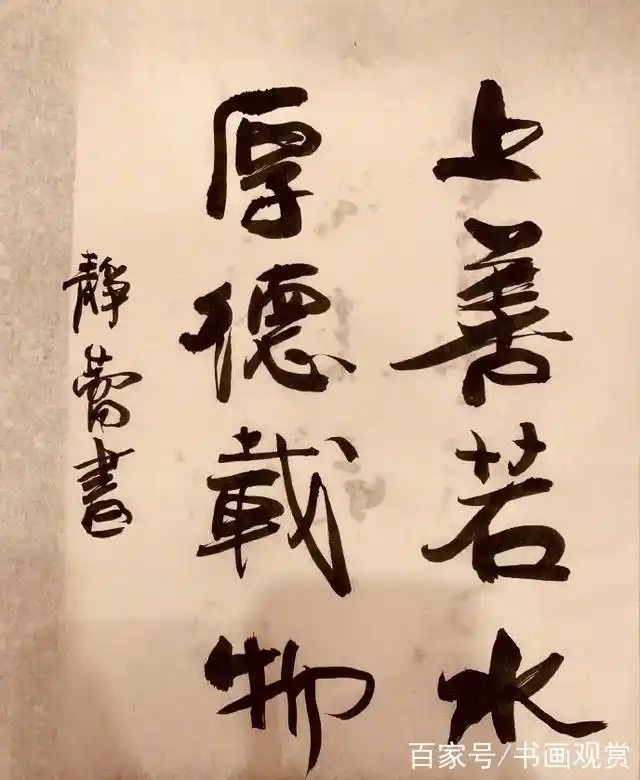 上善若水
厚德載物
靜蕾書
百家号/书画观赏